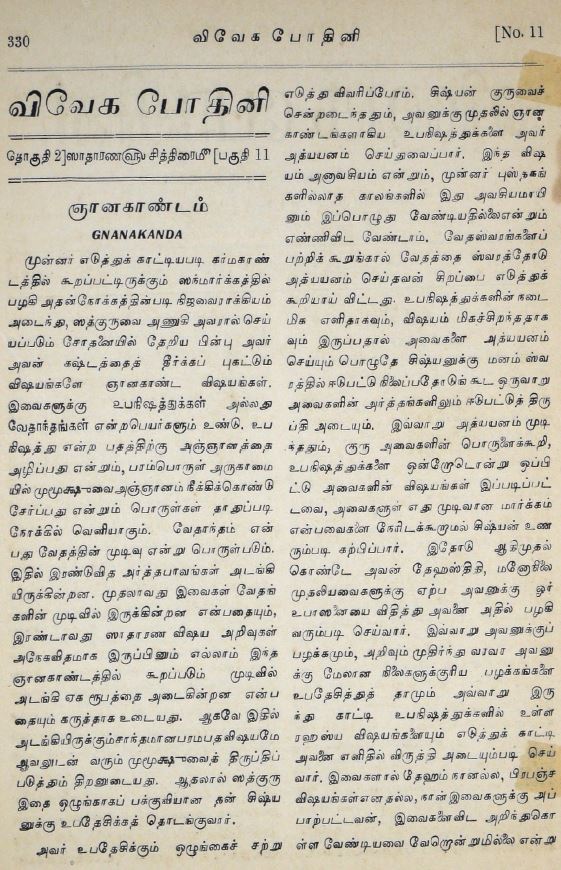 330
விவேக போதினி
[No. 11
விவேக போதினி
தொகுதி 2]ஸாதாரணளு சித்திரைமீ [பகுதி 11
ஞானகாண்டம்
GNANAKANDA
முன்னர் எடுத்துக் காட்டியபடி கர்மகாண்
டத்தில் கூறப்பட்டிருக்கும் ஸந்மார்க்கத்தில்
பழகி அதன்நோக்கத்தின்படி நிஜவைராக்கியம்
அடைந்து, ஸத்குருவை அணுகி அவரால் செய்
யப்படும் சோதனையில் தேறிய பின்பு அவர்
அவன் கஷ்டத்தைத் தீர்க்கப் புகட்டும்
விஷயங்களே ஞானகாண்ட விஷயங்கள்.
இவைகளுக்கு உபநிஷத்துக்கள் அல்லது
வேதாந்தங்கள் என்றபெயர்களும் உண்டு. உப
நிஷத்து என்ற பதத்திற்கு அஞ்ஞானத்தை
அழிப்பது என்றும், பரம்பொருள் அருகாமை
யில் முமூக்ஷுவை அஞ்ஞானம் நீக்கிக்கொண்டு
சேர்ப்பது என்றும் பொருள்கள் தாதுப்படி
நோக்கில் வெளியாகும். வேதாந்தம் என்
பது வேதத்தின் முடிவு என்று பொருள்படும்.
இதில் இரண்டுவித அர்த்தபாவங்கள் அடங்கி
யிருக்கின்றன. முதலாவது இவைகள் வேதங்
களின் முடிவில் இருக்கின்றன என்பதையும்,
இரண்டாவது ஸாதாரண விஷய அறிவுகள்
அநேகவிதமாக இருப்பினும் எல்லாம் இந்த
ஞானகாண்டத்தில் கூறப்படும் முடிவில்
அடங்கி ஏக ரூபத்தை அடைகின்றன என்ப
தையும் கருத்தாக உடையது. ஆகவே இதில்
அடங்கியிருக்கும்சாந்தமானபரமபதவிஷயமே
ஆவலுடன் வரும் முமூக்ஷுவைத் திருப்திப்
படுத்தும் திறனுடையது. ஆதலால் ஸத்குரு
இதை ஒழுங்காகப் பக்குவியான தன் சிஷ்ய
னுக்கு உபதேசிக்கத் தொடங்குவார்.
அவர் உபதேசிக்கும் ஒழுங்கைச் சற்று
எடுத்து விவரிப்போம். சிஷ்யன் குருவைச்
சென்றடைந்ததும், அவனுக்குமுதலில் ஞான
காண்டங்களாகிய உபநிஷத்துக்களை அவர்
அத்யயனம் செய்துவைப்பார். இந்த விஷ
யம் அனாவசியம் என்றும், முன்னர் புஸ்தகங்
களில்லாத காலங்களில் இது அவசியமாயி
னும் இப்பொழுது வேண்டியதில்லைஎன்றும்
எண்ணிவிட வேண்டாம். வேதஸ்வரங்களைப்
பற்றிக் கூறுங்கால் வேதத்தை ஸ்வரத்தோடு
அத்யயனம் செய்தவன் சிறப்பை எடுத்துக்
கூறியாய் விட்டது. உபநிஷத்துக்களின் நடை
மிக எளிதாகவும், விஷயம் மிகச்சிறந்ததாக
வும் இருப்பதால் அவைகளை அத்யயனம்
செய்யும் பொழுதே சிஷ்யனுக்கு மனம் ஸ்வ
ரத்தில் ஈடுபட்டு நிலைப்பதோடுங் கூட ஒருவாறு
அவைகளின் அர்த்தங்களிலும் ஈடுபட்டுத் திரு
ப்தி அடையும். இவ்வாறு அத்யயனம் முடி
ந்ததும், குரு அவைகளின் பொருளைக்கூறி,
உபநிஷத்துக்களை ஒன்றோடொன்று ஒப்பி
ட்டு அவைகளின் விஷயங்கள் இப்படிப்பட்
டவை, அவைகளுள் எது முடிவான மார்க்கம்
என்பவைகளை நேரிடக்கூறாமல் சிஷ்யன் உண
ரும்படி கற்பிப்பார். இதோடு ஆதிமுதல்
கொண்டே அவன் தேஹஸ்திதி, மனோநிலை
முதலியவைகளுக்கு ஏற்ப அவனுக்கு ஓர்
உபாஸனையை விதித்து அவனை அதில் பழகி
வரும்படி செய்வார். இவ்வாறு அவனுக்குப்
பழக்கமும், அறிவும் முதிர்ந்து வரவர அவனு
க்கு மேலான நிலைகளுக்குரிய பழக்கங்களை
உபதேசித்துத் தாமும் அவ்வாறு இரு
ந்து காட்டி உபநிஷத்துக்களில் உள்ள
ரஹஸ்ய விஷயங்களையும் எடுத்துக் காட்டி
அவனை எளிதில் விருத்தி அடையும்படி செய்
வார். இவைகளால் தேஹம் நானல்ல, பிரபஞ்ச
விஷயங்கள்எனதல்ல, நான்இவைகளுக்கு அப்
பாற்பட்டவன், இவைகளைவிட அறிந்துகொ
ள்ள வேண்டியவை வேறொன்றுமில்லை என்று